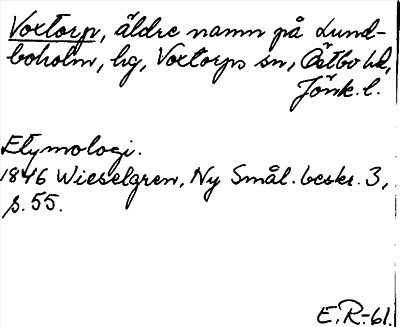 Voxtorp, äldre namn på Lund-
boholm, hg, Voxtorps sn, Östbo hd,
Jönk. l.
Etymologi.
1846 Wieselgren, Ny Smål. beskr. 3,
s. 55.
E. R.-61.